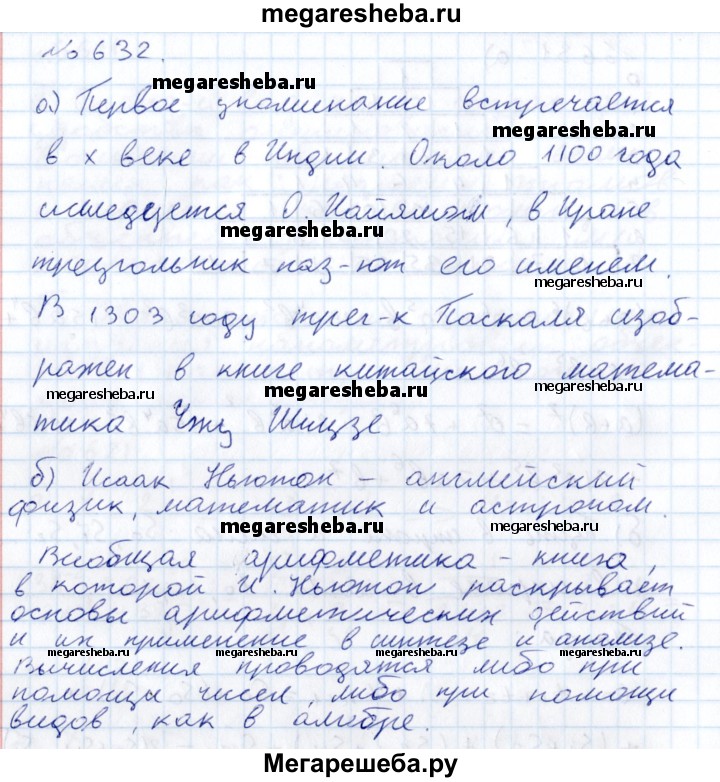 megaresheba.ru
№ 632.
megaresheba.ru
а) Первое упоминание встречается
megaresheba.ru
в X веке в Индии. Около 1100 года
исследуется О. Хайямом, в Иране
megaresheba.ru
треугольник наз-ют его именем.
megaresheba.ru
В 1303 году треуг-к Паскаля изоб-
ражен в книге китайского матема-
megaresheba.ru megaresheba.ru megaresheba.ru
тика Чжу Шицзе
б) Исаак Ньютон – английский
физик, математик и астроном.
megaresheba.ru megaresheba.ru
Всеобщая арифметика – книга,
в которой И. Ньютон раскрывает
основы арифметических действий
и их применение в синтезе и анализе.
megaresheba.ru megaresheba.ru megaresheba.ru
Вычисления проводятся либо при
помощи чисел, либо при помощи
видов, как в алгебре.
megaresheba.ru
Мегарешеба.ру